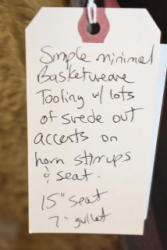 Simple minimal
Basketweave
Tooling w/ lots
of suede out
accents on
horn stirrups
& seat.
15" seat
7" gullet